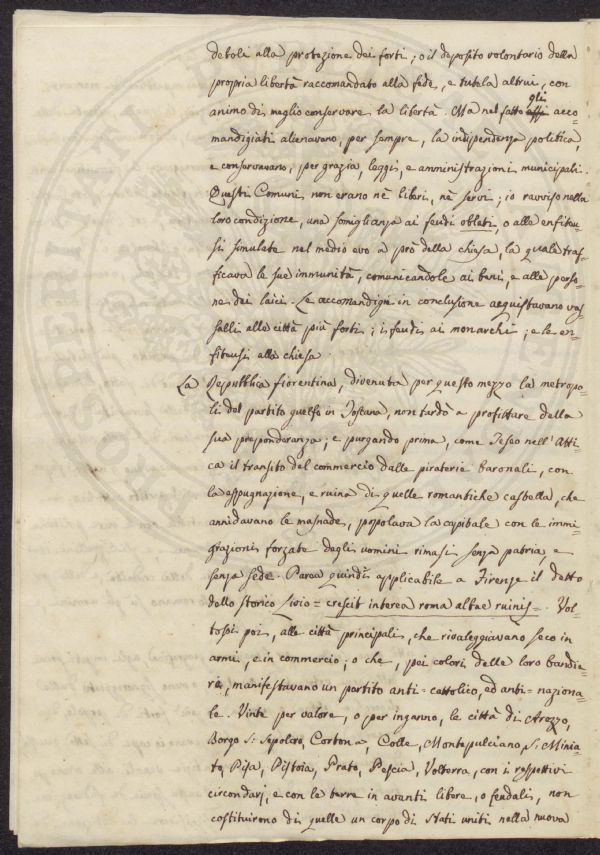 deboli alla protezione dei forti; o il deposito volontario della
propria libertà raccomandato alla fede, e tutela altrui, con
animo di meglio conservare la libertà. Ma nel fatto gli acco-
mandigiati alienavano, per sempre, la indipendenza politica,
e conservavano, per grazia, leggi, e amministrazioni municipali.
Questi Comuni non erano nè liberi, nè servi; io ravviso nella
loro condizione, una somiglianza ai feudi oblati, o alle enfiteu-
si simulate nel medio evo a prò della chiesa, la quale traf-
ficava le sue immunità, comunicandole ai beni, e alle perso-
ne dei laici. Le accomandigie in conclusione acquistavano vas-
salli alle città più forti; i feudi ai monarchi; e le en-
fiteusi alla chiesa.
La Repubblica fiorentina, divenuta per questo mezzo la metropo-
li del partito guelfo in Toscana, non tardò a profittare della
sua preponderanza; e purgando prima, come Teseo nell'Atti-
ca il transito del commercio dalle piraterie baronali, con
la espugnazione, e ruina di quelle romantiche castella, che
annidavano le masnade, popolava la capitale con le immi-
grazioni forzate degli uomini rimasi senza patria, e
senza sede. Parea quindi applicabile a Firenze il detto
dello storico Livio = crescit interea roma albae ruinis =. Vol-
tossi poi, alle città principali, che rivaleggiavano seco in
armi, e in commercio; o che, pei colori delle loro bandie-
re, manifestavano un partito anti-cattolico, ed anti-naziona-
le. Vinte per valore, o per inganno, le città di Arezzo,
Borgo S: Sepolcro, Cortona, Colle, Montepulciano, S: Minia-
to, Pisa, Pistoia, Prato, Pescia, Volterra, con i respettivi
circondarj, e con le terre in avanti libere, o feudali, non
costituirono di quelle un corpo di Stati uniti nella nuova